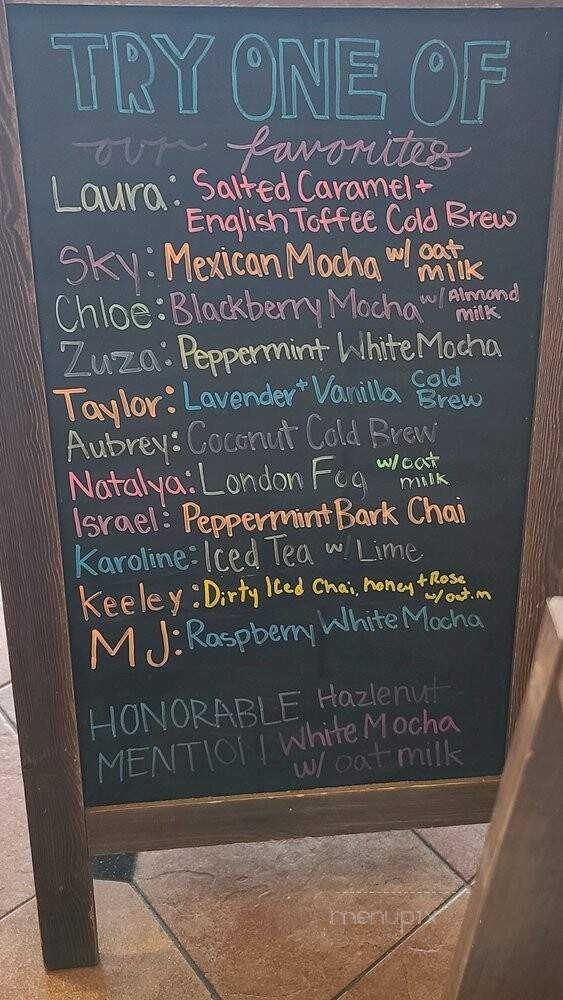 TRY ONE OF
our favorites
Laura: Salted Caramel +
English Toffee Cold Brew
Sky: Mexican Mocha w/ oat
milk
Chloe: Blackberry Mocha w/ Almond
milk
Zuza: Peppermint White Mocha
Taylor: Lavender + Vanilla Cold
Brew
Aubrey: Coconut Cold Brew
Natalya: London Fog w/oat
milk
Israel: Peppermint Bark Chai
Karoline: Iced Tea w/ Lime
Keeley: Dirty Iced Chai, honey + Rose
w/oat.m
MJ: Raspberry White Mocha
HONORABLE Hazlenut
MENTION White Mocha
w/ oat milk
menupix